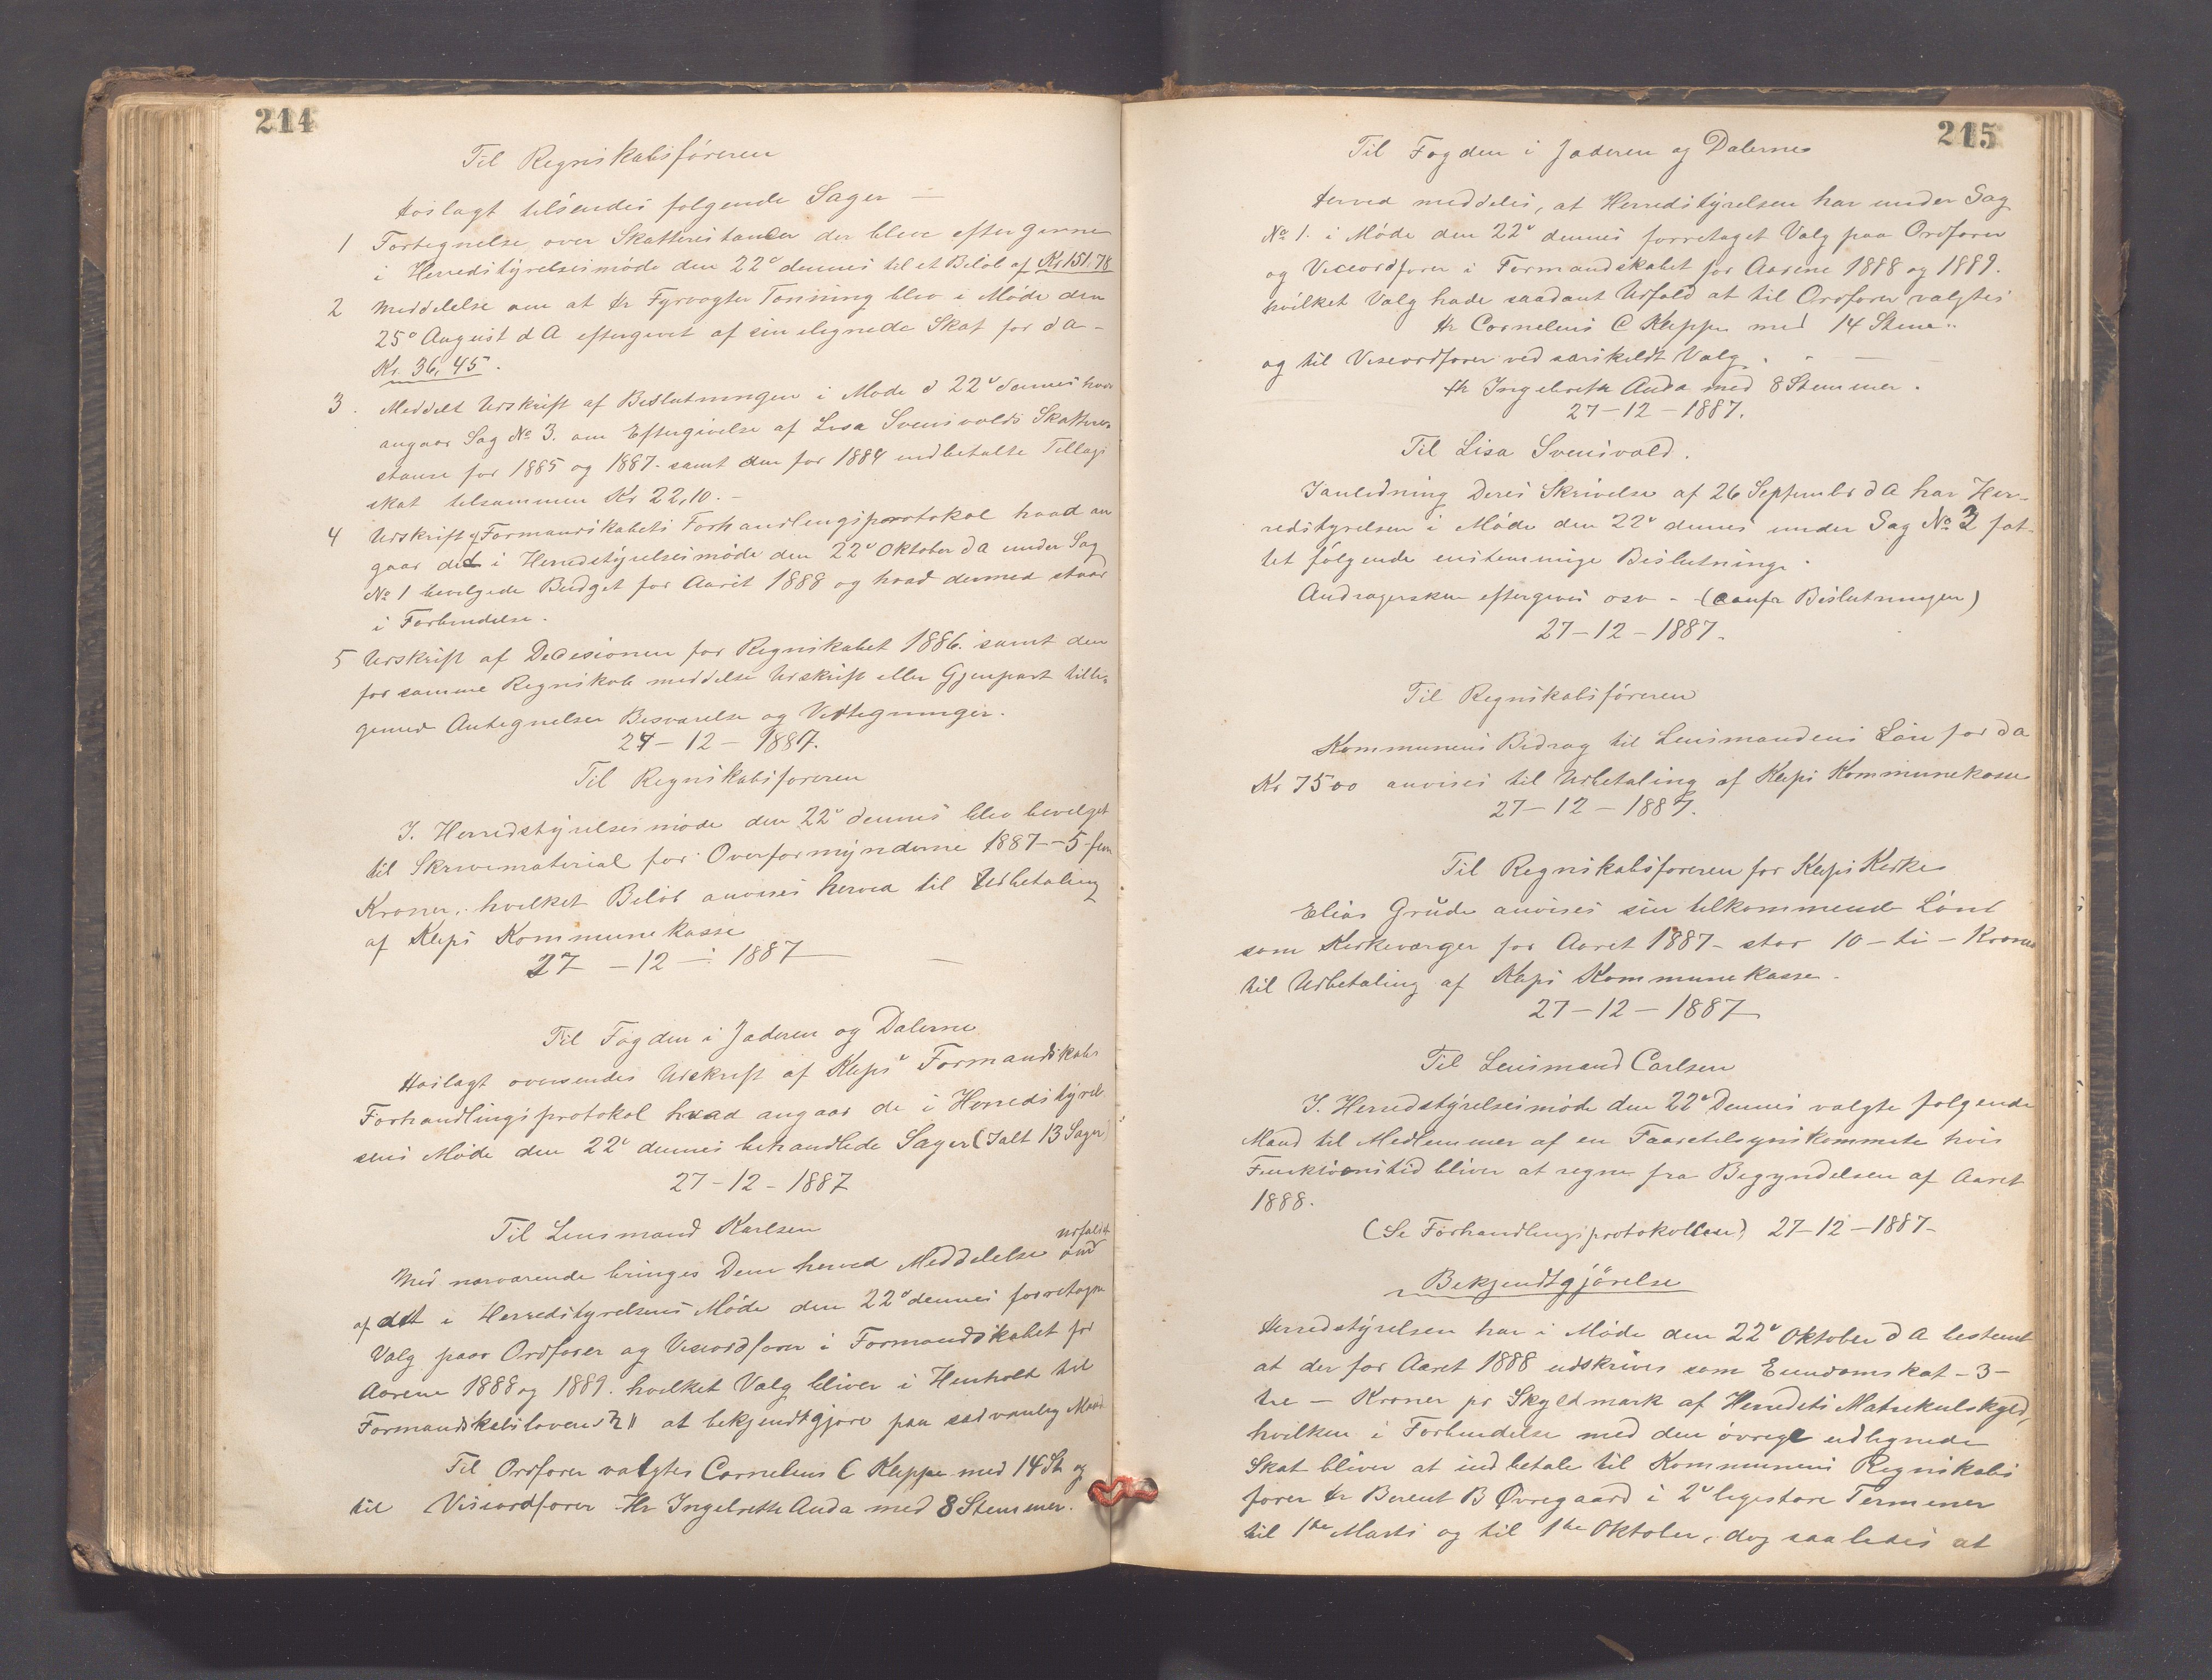 214
Til Regnskabsføreren
Hoslagt tilsendes følgende Sager –
1 Fortegnelse over Skatterestancer der blev eftergivne
i Herredstyrelsesmøde den 22de dennes til et Beløb af Kr 151,78
2 Meddelelse om at Hr Fyrvogter Tonning blev i Møde den
25de August d A eftergivet af sin ilignede Skat for d A –
Kr. 36,45.
3. Meddelt Udskrift af Beslutningen i Møde d 22de dennes hvor
angaar Sag No 3. om Eftergivelse af Lisa Svensvolds Skattere
stanse for 1885 og 1887. samt den for 1884 indbetalte Tillægs
skat tilsammen Kr 22,10. –
4 Udskrift af Formandskabets Forhandlingsprotokol hvad an
gaar det i Herredstyrelsesmøde den 22de Oktober d A under Sag
No 1 bevilgede Budget for Aaret 1888 og hvad dermed staar
i Forbindelse.
5 Udskrift af Decisionen for Regnskabet 1886. samt den
for samme Regnskab meddelte Udskrift eller Gjenpart tilli-
gemed Antegnelser Besvarelse og Vedtegninger.
27 – 12 – 1887.
Til Regnskabsføreren
I. Herredstyrelsesmøde den 22de dennes blev bevilget
til Skrivematerial for Overformynderne 1887 – 5 fem
Kroner, hvilket Beløb anvises herved til Udbetaling
af Kleps Kommunekasse
27 – 12 – 1887
Til Fogden i Jæderen og Dalerne
Hoslagt oversendes Udskrift af Kleps Formandskabs
Forhandlingsprotokol hvad angaar de i Herredstyrel
sens Møde den 22de dennes behandlede Sager (Ialt 13 Sager)
27 – 12 – 1887
Til Lensmand Karlsen
Med nærværende bringes Dem herved Meddelelse om Udfaldet
af det i Herredstyrelsens Møde den 22de dennes foretagne
Valg paa Ordfører og Viseordfører i Formandskabet for
Aarene 1888 og 1889. hvilket Valg bliver i Henhold til
Formandskabsloven § 11 at bekjendtgjøre paa sædvanlig Maade
Til Ordfører valgtes Cornelius C Kleppe med 14 St og
til Viseordfører Hr Ingebreth Anda med 8 Stemmer.
215
Til Fogden i Jæderen og Dalernes
Herved meddeles, at Herredstyrelsen har under Sag
No 1. i Møde den 22de dennes foretaget Valg paa Ordfører
og Viceordfører i Formandskabet for Aarene 1888 og 1889.
hvilket Valg havde saadant Udfald at til Ordfører valgtes
Hr Cornelius C Kleppe med 14 Stem..
og til Viseordfører ved særskildt Valg
Hr Ingebreth Anda med 8 Stemmer.
27 – 12 – 1887.
Til Lisa Svensvold.
I anledning Deres Skrivelse af 26 Septembr d A har Her-
redstyrelsen i Møde den 22de dennes under Sag No 3 fat-
tet følgende enstemmige Beslutning.
Andragersken eftergives osv – (confr Beslutningen)
27 – 12 – 1887.
Til Regnskabsføreren
Kommunens Bidrag til Lensmandens Løn for d A
Kr 75 00 anvises til Udbetaling af Kleps Kommunekasse
27 – 12 – 1887.
Til Regnskabsføreren for Kleps Kirke
Elias Grude anvises sin tilkommende Lønd
som Kirkeværger for Aaret 1887 – stor 10 – ti – Kroner
til Udbetaling af Kleps Kommunekasse.
27 – 12 – 1887
Til Lensmand Carlsen
I. Herredstyrelsesmøde den 22de Dennes valgte følgende
Mænd til Medlemmer af en Faaretilsynskommite hvis
Funktionstid bliver at regne fra Begyndelsen af Aaret
1888.
(Se Forhandlingsprotokollen) 27 – 12 – 1887 –
Bekjendtgjørelse
Herredstyrelsen har i Møde den 22de Oktober d A bestemt
at der for Aaret 1888 udskrives som Eiendomskat – 3 –
tre – Kroner pr Skyldmark af Herredets Matrikulskyld,
hvilken i Forbindelse med den øvrige udlignede
Skat bliver at indbetale til Kommunens Regnskabs
fører Hr Berent B Øvregaard i 2de ligestore Terminer
til 1ste Marts og til 1ste Oktober, dog saaledes at